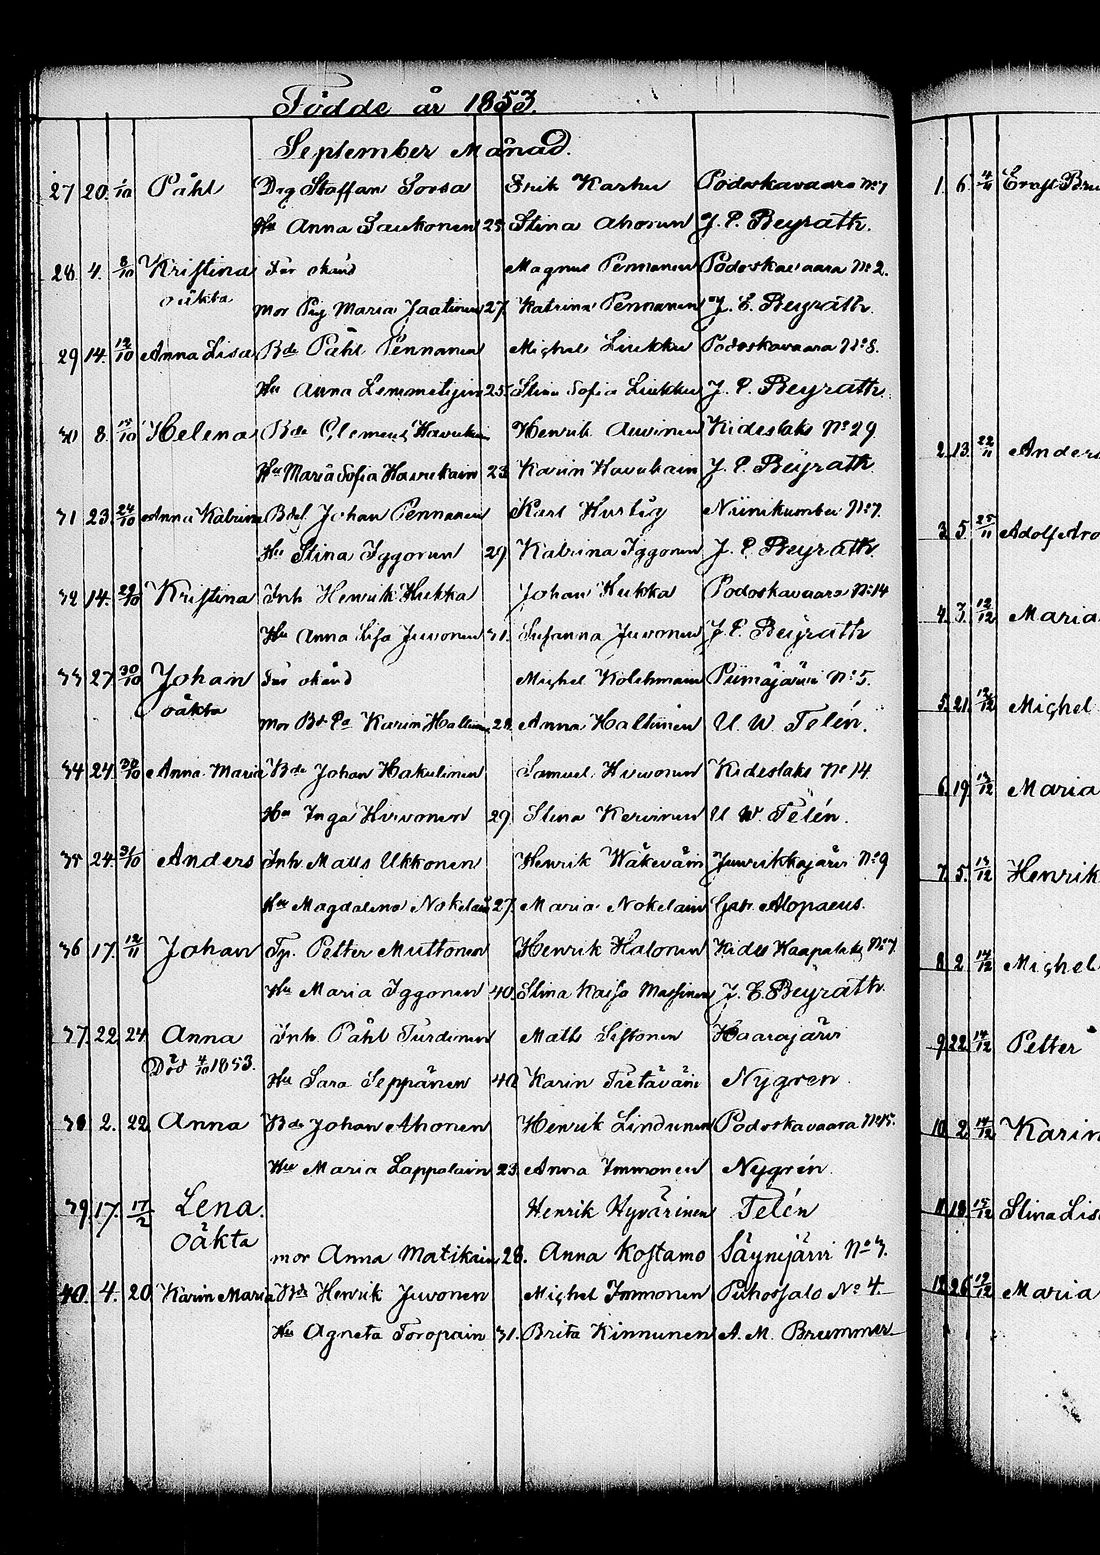 Födde år 1853.
September Månad.
27 20. 1/10 Påhl Drg Staffan Sorsa Erik Karhu Podoskavaara No 7
Hu Anna Saukonen 25 Stina Ahonen J. E. Beyrath.
28. 4. 8/10 Kristina Far okänd Magnus Pennanen Podoskavaara No 2.
oäkta mor Pig Maria Jaatinen 27. Katrina Pennanen J. E. Beyrath.
29 14. 12/10 Anna Lisa Bde Påhl Pennanen Mighel Liukku Podoskavaara No 8.
Hu Anna Lemmetijin 25. Stina Sofia Liukku J. E. Beyrath
30 8. 17/10 Helena Bde Clement Havukain Henrik Auvinen Kideslaks No 29
Hu Maria Sofia Havukain 23 Karin Havukain J. E. Beyrath
31 23 24/10 Anna Katrina Bdel. Johan Pennanen Karl Hurtig Niinikumbu No 7.
Hu Stina Iggonen 29 Katrina Iggonen J. E. Beyrath.
32 14. 29/10 Kristina Inh Henrik Kukka Johan Kukka Podoskavaara No 14
Hu Anna Lisa Juvonen 31. Susanna Juvonen J. E. Beyrath
33 27 30/10 Johan Far okänd Mighel Kolehmain Piimäjärvi No 5.
oäkta mor Bd Pa Karin Haltunen 28. Anna Haltunen U W Telén.
34 24. 30/10 Anna Maria Bde Johan Hakulinen Samuel Hirvonen Kideslaks No 14.
Hu Inga Hirvonen 29 Stina Kervinen U W. Telén.
35 24. 31/10 Anders Inh Matts Ukkonen Henrik Wäkeväin Juurikkajärvi No 9
Hu Magdalena Nokelain 27. Maria Nokelain Gab. Alopaeus.
36 17. 12/11 Johan Tp. Petter Muttonen Henrik Halonen Kides Haapalaks No 7
Hu Maria Iggonen 40. Stina Kaisa Massinen J. E. Beyrath.
37. 22 24 Anna Inh. Påhl Turdinen Matts Siftonen Haarajärvi
Död 4/10 1853. Hu Sara Seppänen 40 Karin Tietäväin Nygren.
38 2. 22 Anna Bde Johan Ahonen Henrik Lindunen Podoskavaara No 15.
Hu Maria Lappalain 23. Anna Immonen Nygrén.
39. 17. 17/2 Lena. Henrik Hyvärinen Telén
oäkta mor Anna Matikain 28. Anna Kostamo Säynejärvi No 3.
40. 4. 20 Karin Maria Bde Henrik Juvonen Mighel Immonen Puhossalo No 4.
Hu Agneta Toropain 31. Brita Kinnunen A. M. Brummer
1. 6. 4/11 Ernst Bru
2. 13. 22/11 Anders
3. 5. 25/11 Adolf Aro
4. 3. 12/12 Maria
5. 21. 12/12 Mighel
6. 19. 13/12 Maria
7. 5. 13/12 Henrik
8. 2. 14/12 Mighel
9. 22. 14/12 Petter
10. 2. 14/12 Karin
11. 18. 15/12 Stina Lis
12. 26. 19/12 Maria